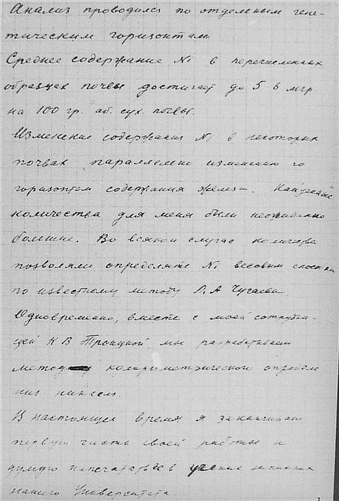 Анализ проводился по отдельным гене-
тическим горизонтам.
Среднее содержание Ni в перечисленных
образцах почвы достигает до 5 6 мгр
на 100 гр. аб. сух почвы.
Изменение содержания Ni в некоторых
почвах параллельно изменению по
горизонтам содержания железа. Найденные
количества для меня были неожиданно
большие. Во всяком случае количества
позволяли определять Ni весовым способом
по известному методу Л. А Чугаева
Одновременно, вместе с моей сотрудни-
цей К В Троицкой мы разработали
метод колориметрической определе
ния никеля.
В настоящее время я заканчиваю
первую часть своей работы и
думаю напечатать ее в учение записках
нашего Университета